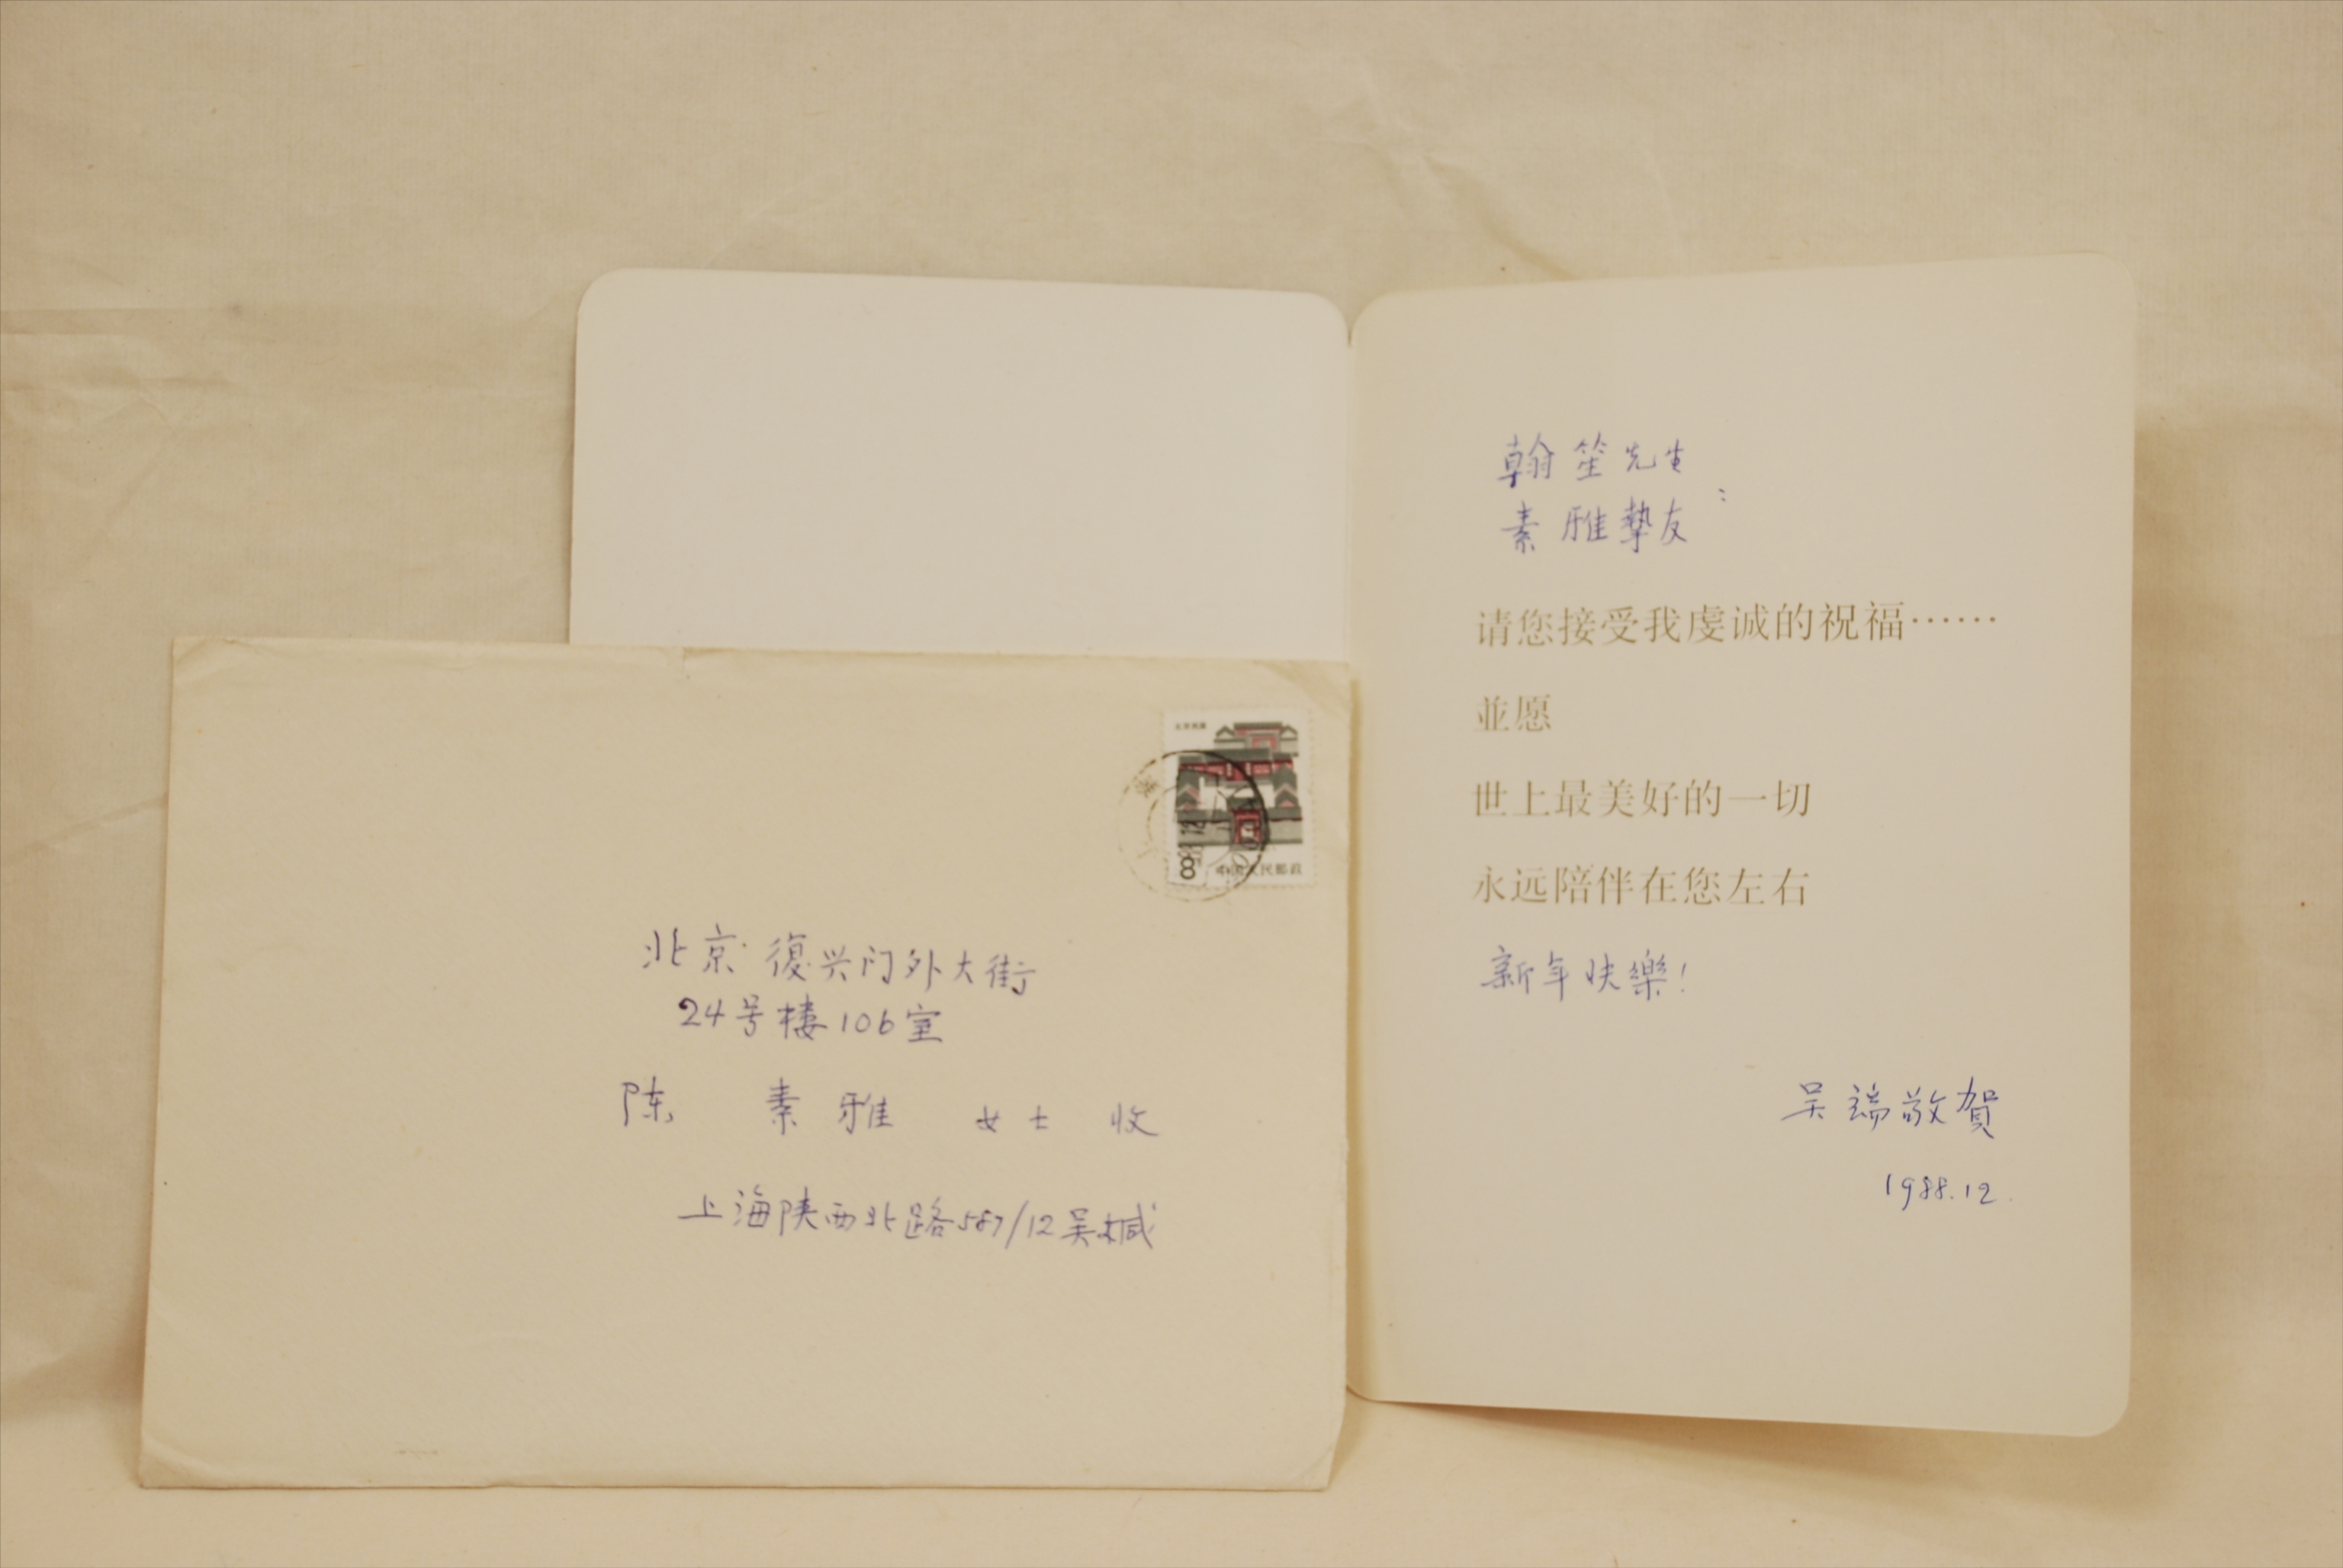 北京 復兴门外大街
24号樓106室
陈 素雅 女士 收
上海陕西北路587/12吴缄
8
中国人民邮政
翰笙先生
素雅摯友：
请您接受我虔诚的祝福……
並愿
世上最美好的一切
永远陪伴在您左右
新年快樂！
吴端敬賀
1988.12.